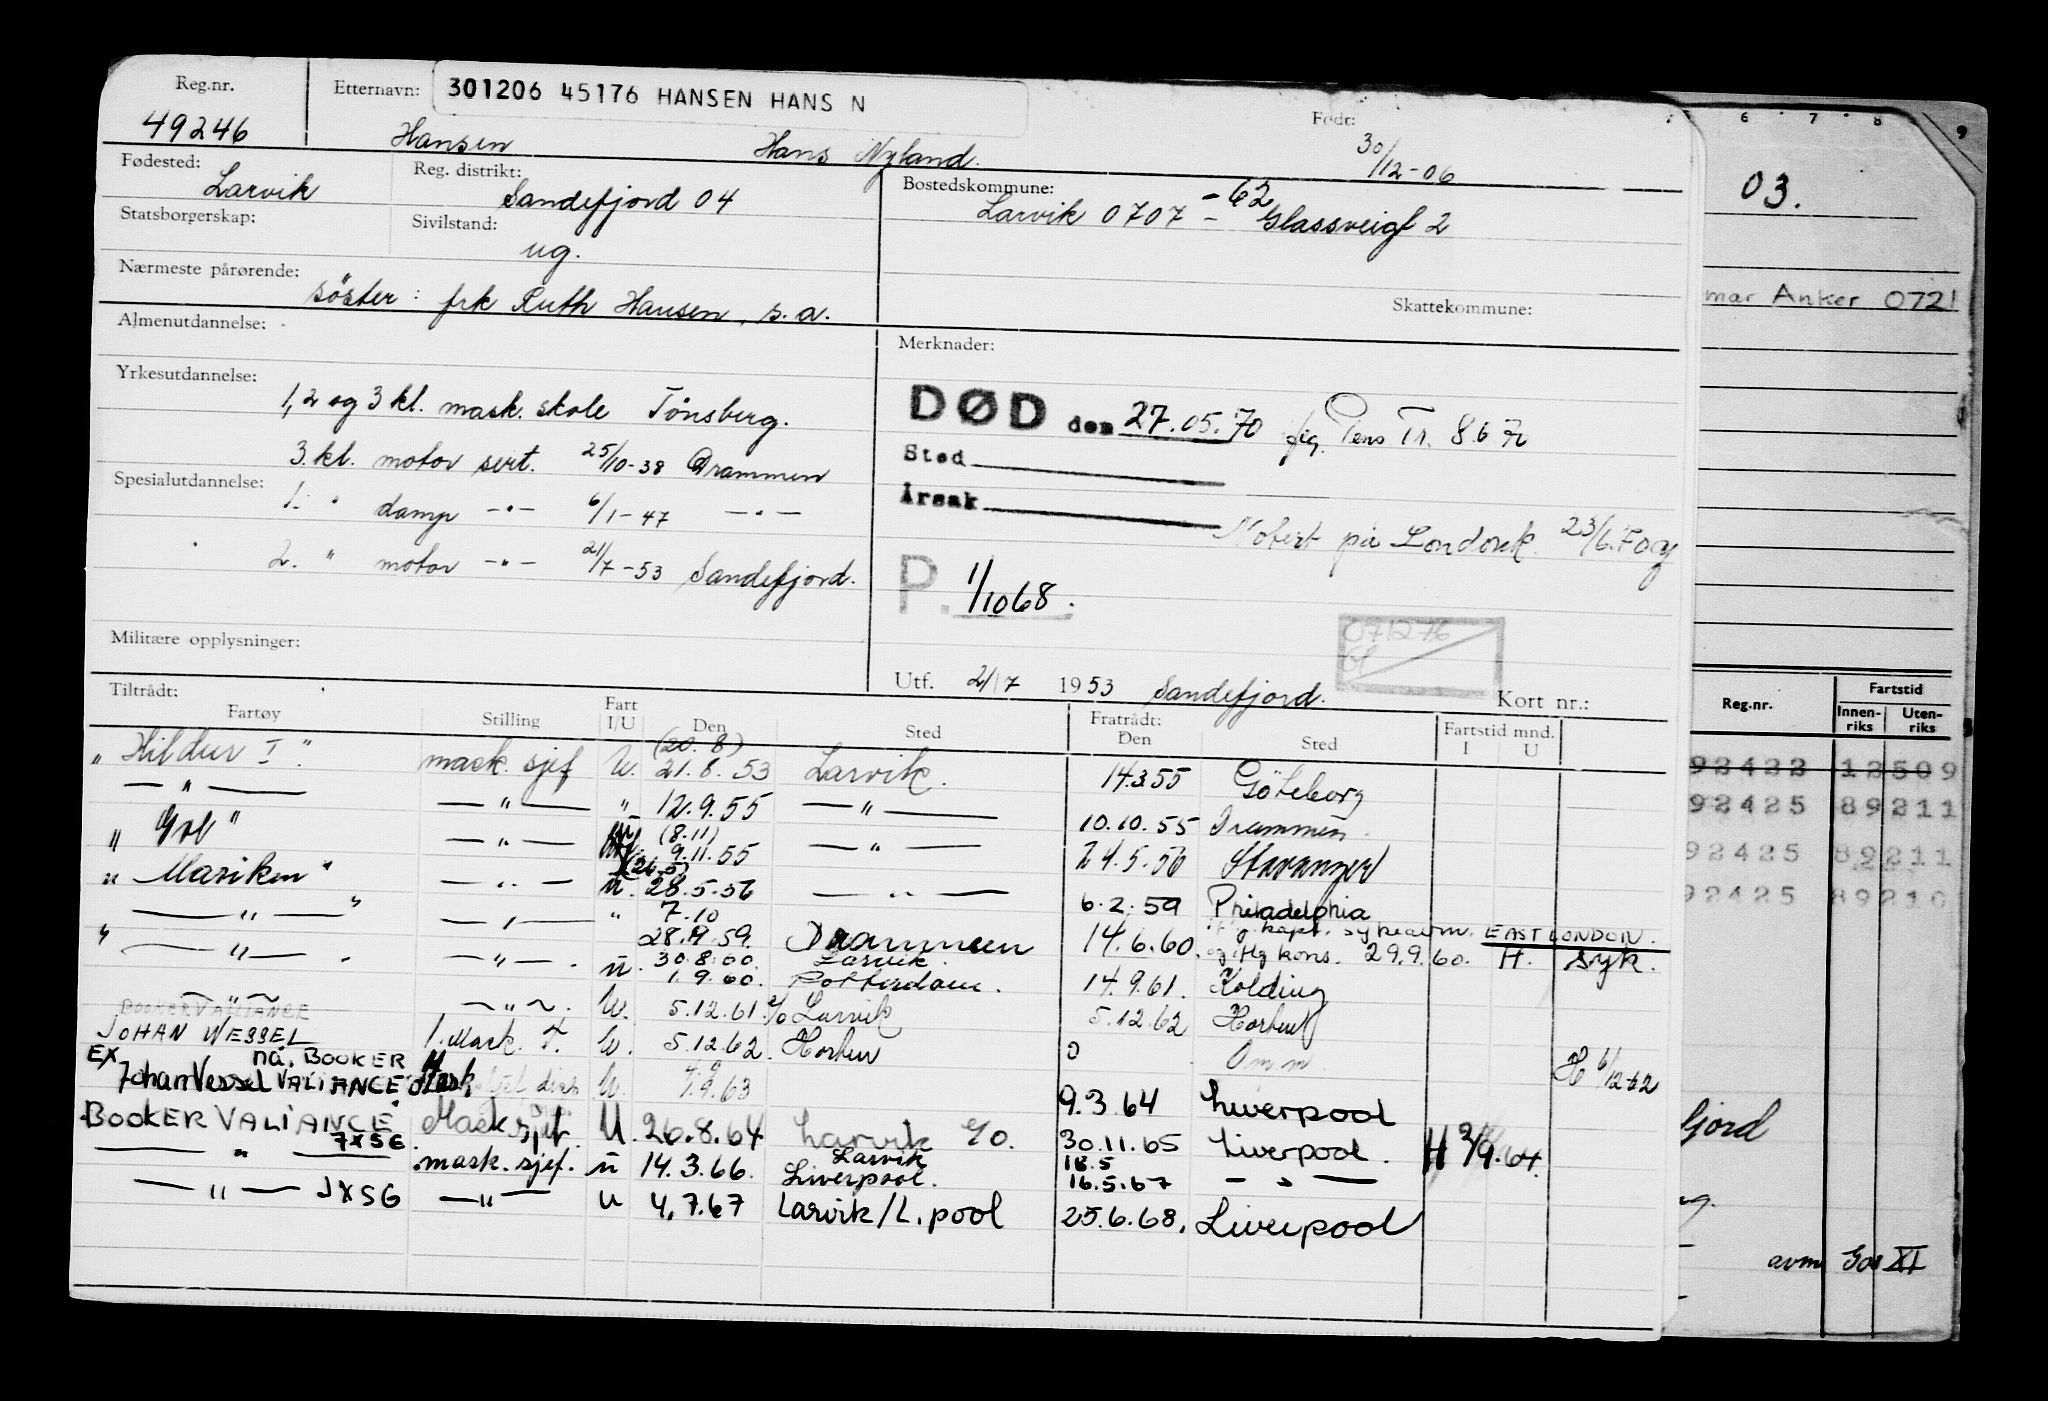 Reg.nr. Etternavn: 301206 45176 HANSEN HANS N Født:
49246 Hansen Hans Nyland. 30/12-06
Fødested: Larvik Reg. distrikt: Sandefjord 04 Bostedskommune: -62
Larvik 0707 - Glassveigt 2
Statsborgerskap: Sivilstand: ug.
Nærmeste pårørende: søster: frk Ruth Hansen, s.a.
Skattekommune:
Almenutdannelse: Merknader:
Yrkesutdannelse: 1, 2 og 3 kl. mask. skole Tönsberg.
DØD den 27.05.70 Tr. 8.6
3. kl. motor sert. 25/10-38 Drammen
Sted
Spesialutdannelse: 1. " damp -"- 6/1-47 -"-
Årsak
Notert på 23/6.
2. " motor -"- 21/7-53 Sandefjord.
P. 1/1068.
Militære opplysninger:
Utf. 21/7 1953 Sandefjord. Kort nr.:
Tiltrådt: Fratrådt: Fartstid mnd.
Fartøy Stilling Fart I/U Den Sted Den Sted I U
(20.8)
"Hildur I" mask. sjef U. 21.8.53 Larvik. 14.3.55 Göteborg
-"- -"- " 12.9.55 -"- 10.10.55 Drammen.
(8.11)
" " -"- 9.11.55 -"- 24.5.56 Stavanger
(26.5)
"Mariken" -"- U. 28.5.56 -"- 6.2.59 Philadelphia
7.10
-"- -"- " 28.9.59. Drammen 14.6.60. EAST LONDON.
30.8.60. Larvik.
-"- -"- U. 1.9.60. Rotterdam. kons. 29.9.60. H. syk.
14.9.61. Kolding
-"- -"- U. 5.12.61. Larvik 5.12.62 Horten
BOOKER VALIANCE
JOHAN WESSEL 1. Mask. U. 5.12.62. Horten 0 Om.m. H 6/12-62
EX nå. BOOKER
Johan Wessel VALIANCE. U. 1.9.63 9.3.64 Liverpool
BOOKER VALIANCE Mask sjef. U. 26.8.64 Larvik 30.11.65 Liverpool. H 2/9.64
-"- JXSG mask. sjef. U 14.3.66. Larvik Liverpool. 18.5 16.5.67 -"-
-"- JXSG -"- U 4.7.67 Larvik/L.pool 25.6.68. Liverpool
6 7 8 9
03.
mar Anker 0721
Reg.nr. Fartstid
Innen-riks Uten-riks
92422 12509
92425 89211
92425 89211
92425 89210
fjord
avm